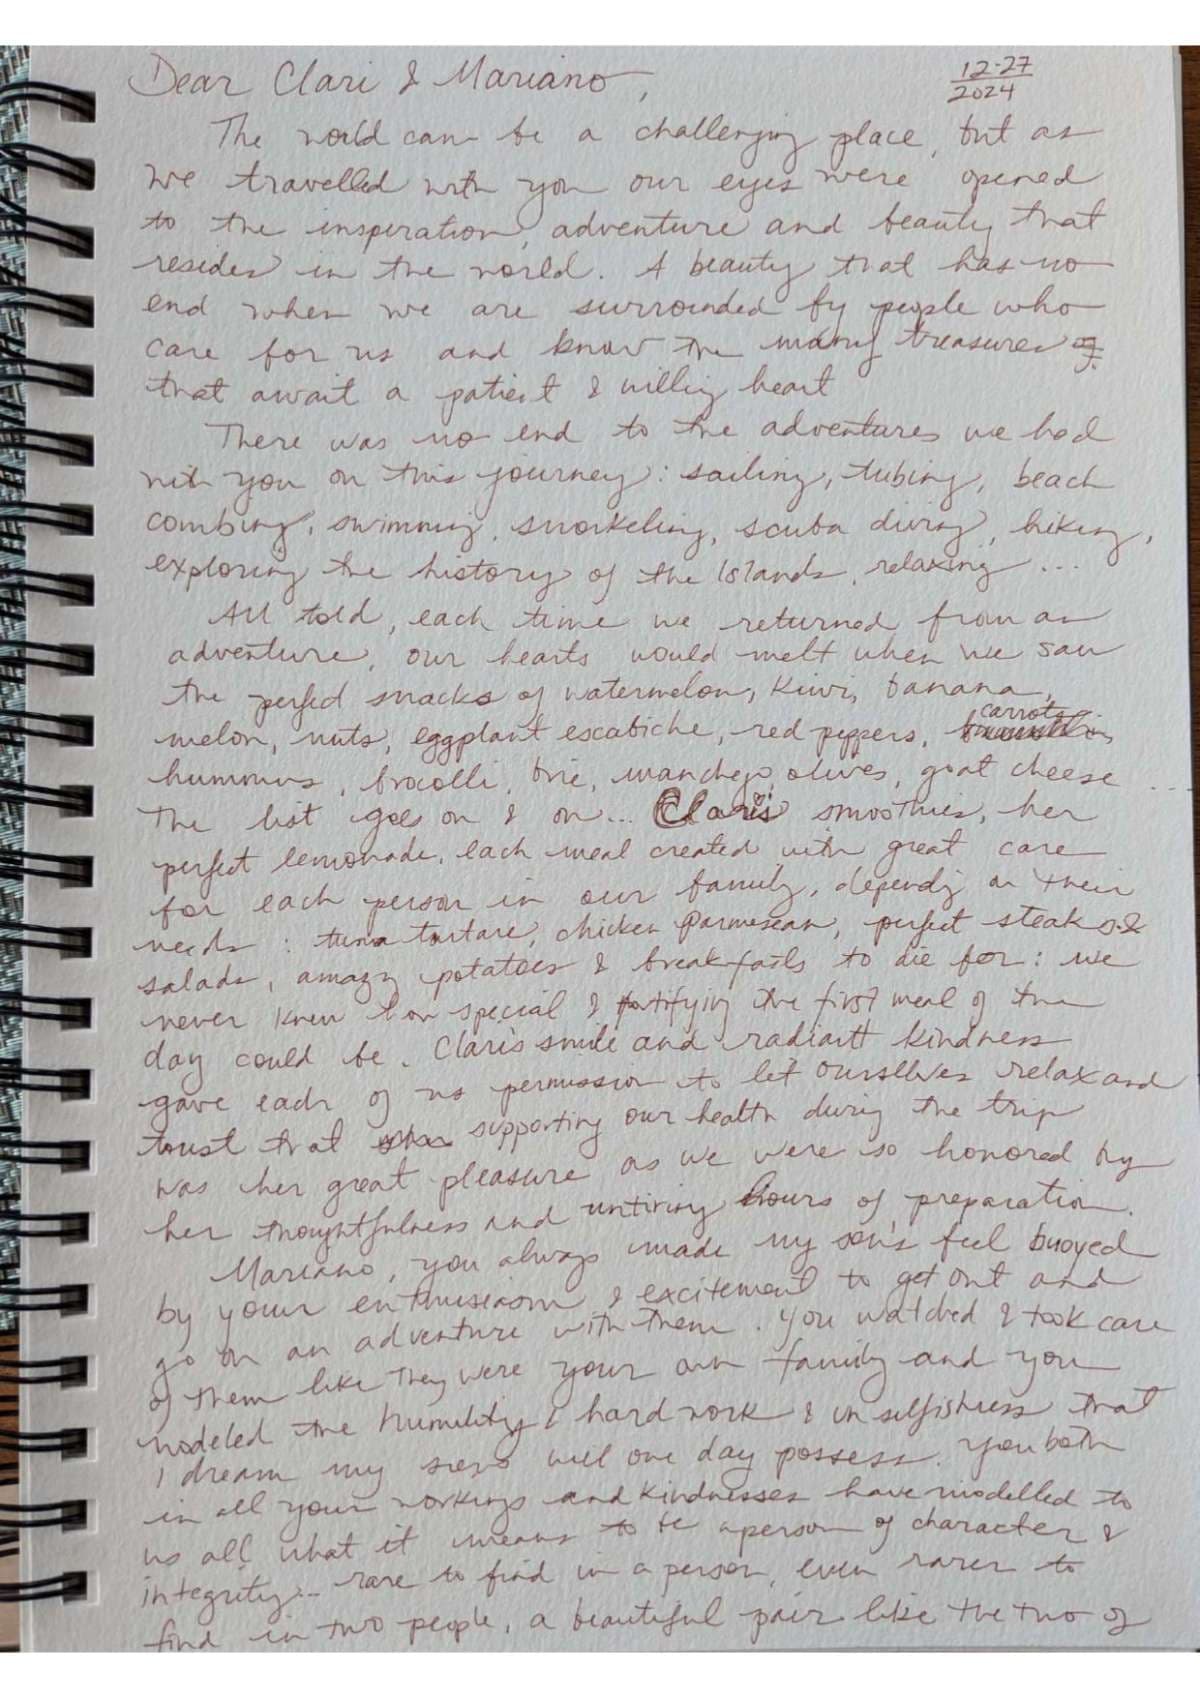 Dear Clari & Mariano,
12-27
2024
The world can be a challenging place, but as
we travelled with you our eyes were opened
to the inspiration, adventure and beauty that
resides in the world. A beauty that has no
end when we are surrounded by people who
care for us and know the many treasures
that await a patient & willing heart
There was no end to the adventures we had
with you on this journey: sailing, tubing, beach
combing, swimming, snorkeling, scuba diving, hiking,
exploring the history of the Islands, relaxing...
All told, each time we returned from an
adventure, our hearts would melt when we saw
the perfect snacks of watermelon, kiwi, banana,
melon, nuts, eggplant escabiche, red peppers, carrots,
hummus, brocolli, brie, manchego, olives, goat cheese...
The list goes on & on... Clari's smoothies, her
perfect lemonade, each meal created with great care
for each person in our family, dependig on their
needs: tuna tartare, chicken parmesean, perfect steaks &
salads, amazing potatoes & breakfasts to die for: we
never knew how special & fortifying the first meal of the
day could be. Clari's smile and radiant kindness
gave each of us permission to let ourselves relax and
trust that supporting our health during the trip
was her great pleasure as we were so honored by
her thoughtfulness and untiring hours of preparation.
Mariano, you always made my son's feel buoyed
by your enthusiasm & excitement to get out and
go on an adventure with them. You watched & took care
of them like they were your own family and you
modeled the humility & hard work & unselfishness that
I dream my sons will one day possess. You both
in all your workings and kindnesses have modelled to
us all what it means to be a person of character &
integrity... rare to find in a person, even rarer to
find in two people, a beautiful pair like the two of